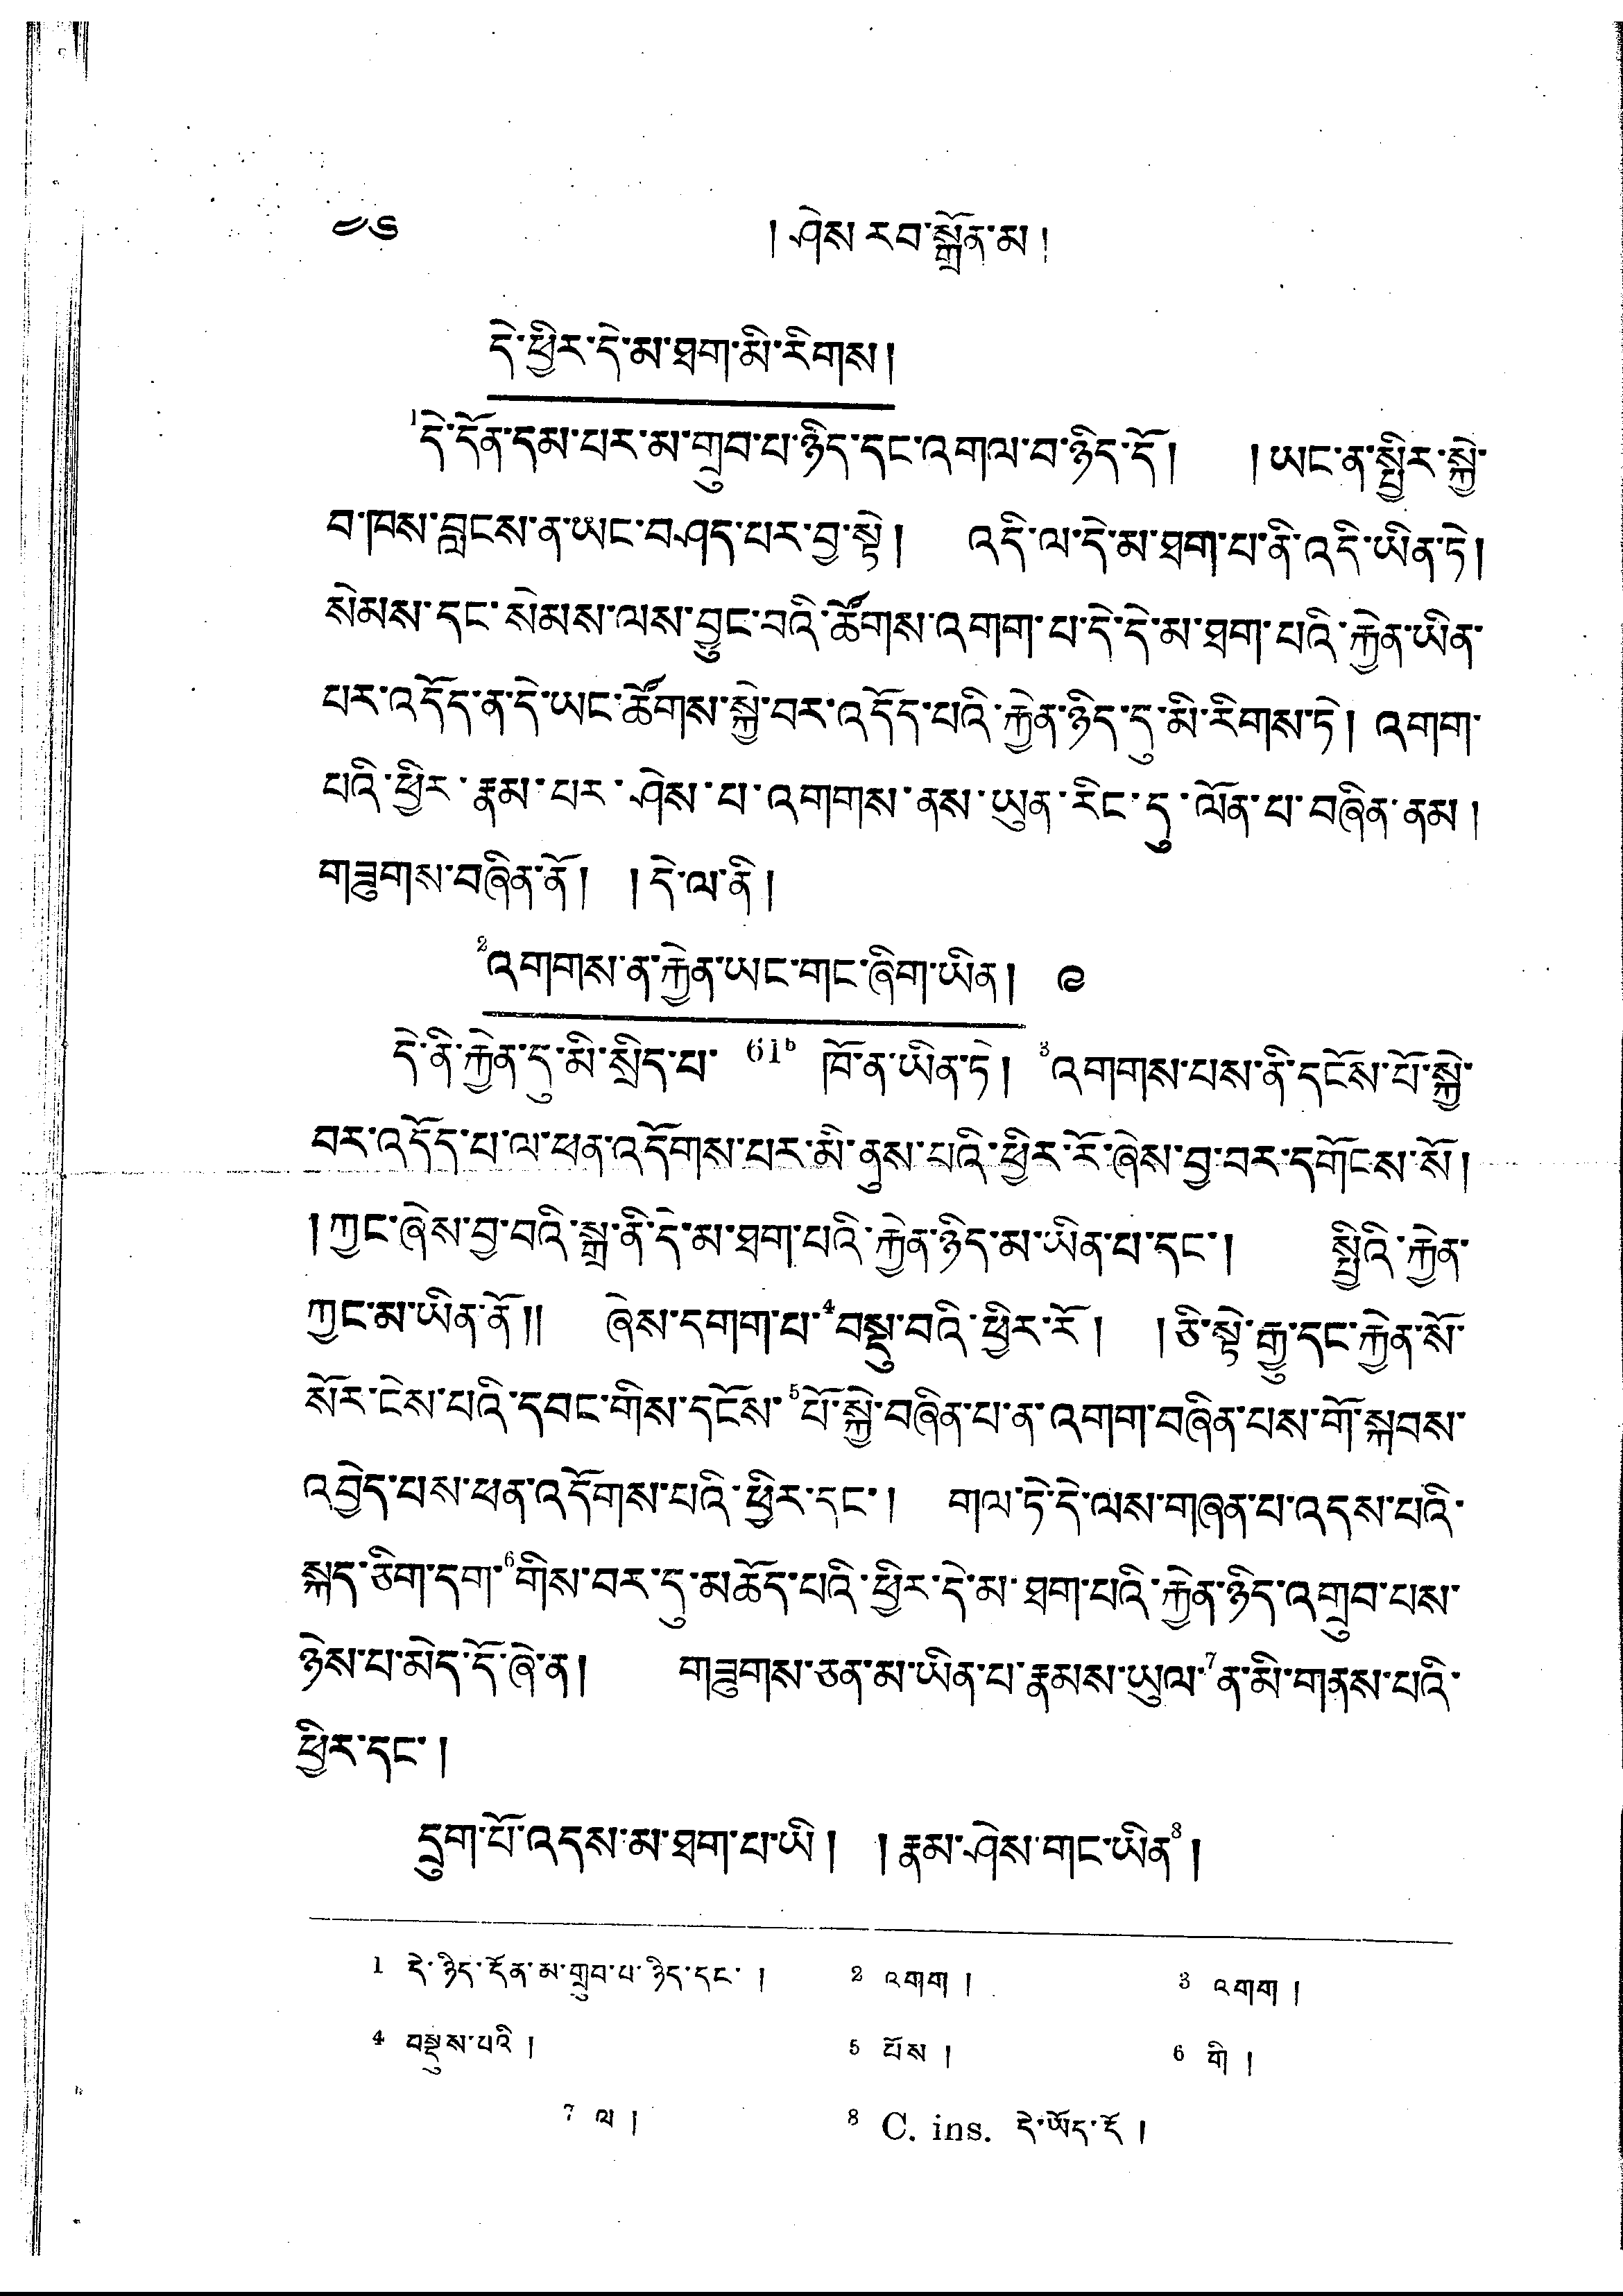 ༧༦ ། ཤེས་རབ་སྒྲོན་མ །
དེ་ཕྱིར་དེ་མ་ཐག་མི་རིགས །
¹དེ་དོན་དམ་པར་མ་གྲུབ་པ་ཉིད་དང་འགལ་བ་ཉིད་དོ། །ཡང་ན་སྤྱིར་སྐྱེ་
བ་ཁས་བླངས་ན་ཡང་བཤད་པར་བྱ་སྟེ། འདི་ལ་དེ་མ་ཐག་པ་ནི་འདི་ཡིན་ཏེ།
སེམས་དང་སེམས་ལས་བྱུང་བའི་ཚོགས་འགག་པ་དེ་དེ་མ་ཐག་པའི་རྐྱེན་ཡིན་
པར་འདོད་ན་དེ་ཡང་ཚོགས་སྐྱེ་བར་འདོད་པའི་རྐྱེན་ཉིད་དུ་མི་རིགས་ཏེ། འགག་
པའི་ཕྱིར་རྣམ་པར་ཤེས་པ་འགགས་ནས་ཡུན་རིང་དུ་ལོན་པ་བཞིན་ནམ།
གཟུགས་བཞིན་ནོ། །དེ་ལ་ནི།
²འགགས་ན་རྐྱེན་ཡང་གང་ཞིག་ཡིན། ༩
དེ་ནི་རྐྱེན་དུ་མི་སྲིད་པ་ 61ᵇ ཁོ་ན་ཡིན་ཏེ། ³འགགས་པས་ནི་དངོས་པོ་སྐྱེ་
བར་འདོད་པ་ལ་ཕན་འདོགས་པར་མི་ནུས་པའི་ཕྱིར་རོ་ཞེས་བྱ་བར་དགོངས་སོ།
།ཀྱང་ཞེས་བྱ་བའི་སྒྲ་ནི་དེ་མ་ཐག་པའི་རྐྱེན་ཉིད་མ་ཡིན་པ་དང་། སྤྱིའི་རྐྱེན་
ཀྱང་མ་ཡིན་ནོ།། ཞེས་དགག་པ་⁴བསྡུ་བའི་ཕྱིར་རོ། །ཅི་སྟེ་རྒྱུ་དང་རྐྱེན་སོ་
སོར་ངེས་པའི་དབང་གིས་དངོས་⁵པོ་སྐྱེ་བཞིན་པ་ན་འགག་བཞིན་པས་གོ་སྐབས་
འབྱེད་པས་ཕན་འདོགས་པའི་ཕྱིར་དང་། གལ་ཏེ་དེ་ལས་གཞན་པ་འདས་པའི་
སྐད་ཅིག་དག་⁶གིས་བར་དུ་མཆོད་པའི་ཕྱིར་དེ་མ་ཐག་པའི་རྐྱེན་ཉིད་འགྲུབ་པས་
ཉེས་པ་མེད་དོ་ཞེ་ན། གཟུགས་ཅན་མ་ཡིན་པ་རྣམས་ཡུལ་⁷ན་མི་གནས་པའི་
ཕྱིར་དང་།
དྲུག་པོ་འདས་མ་ཐག་པ་ཡི། །རྣམ་ཤེས་གང་ཡིན⁸།
1 དེ་ཉིད་དོན་མ་གྲུབ་པ་ཉིད་དང་། 2 འགག། 3 འགག།
4 བསྡུས་པའི། 5 པོས། 6 གི།
7 ལ། 8 C. ins. དེ་ཨོད་དོ།